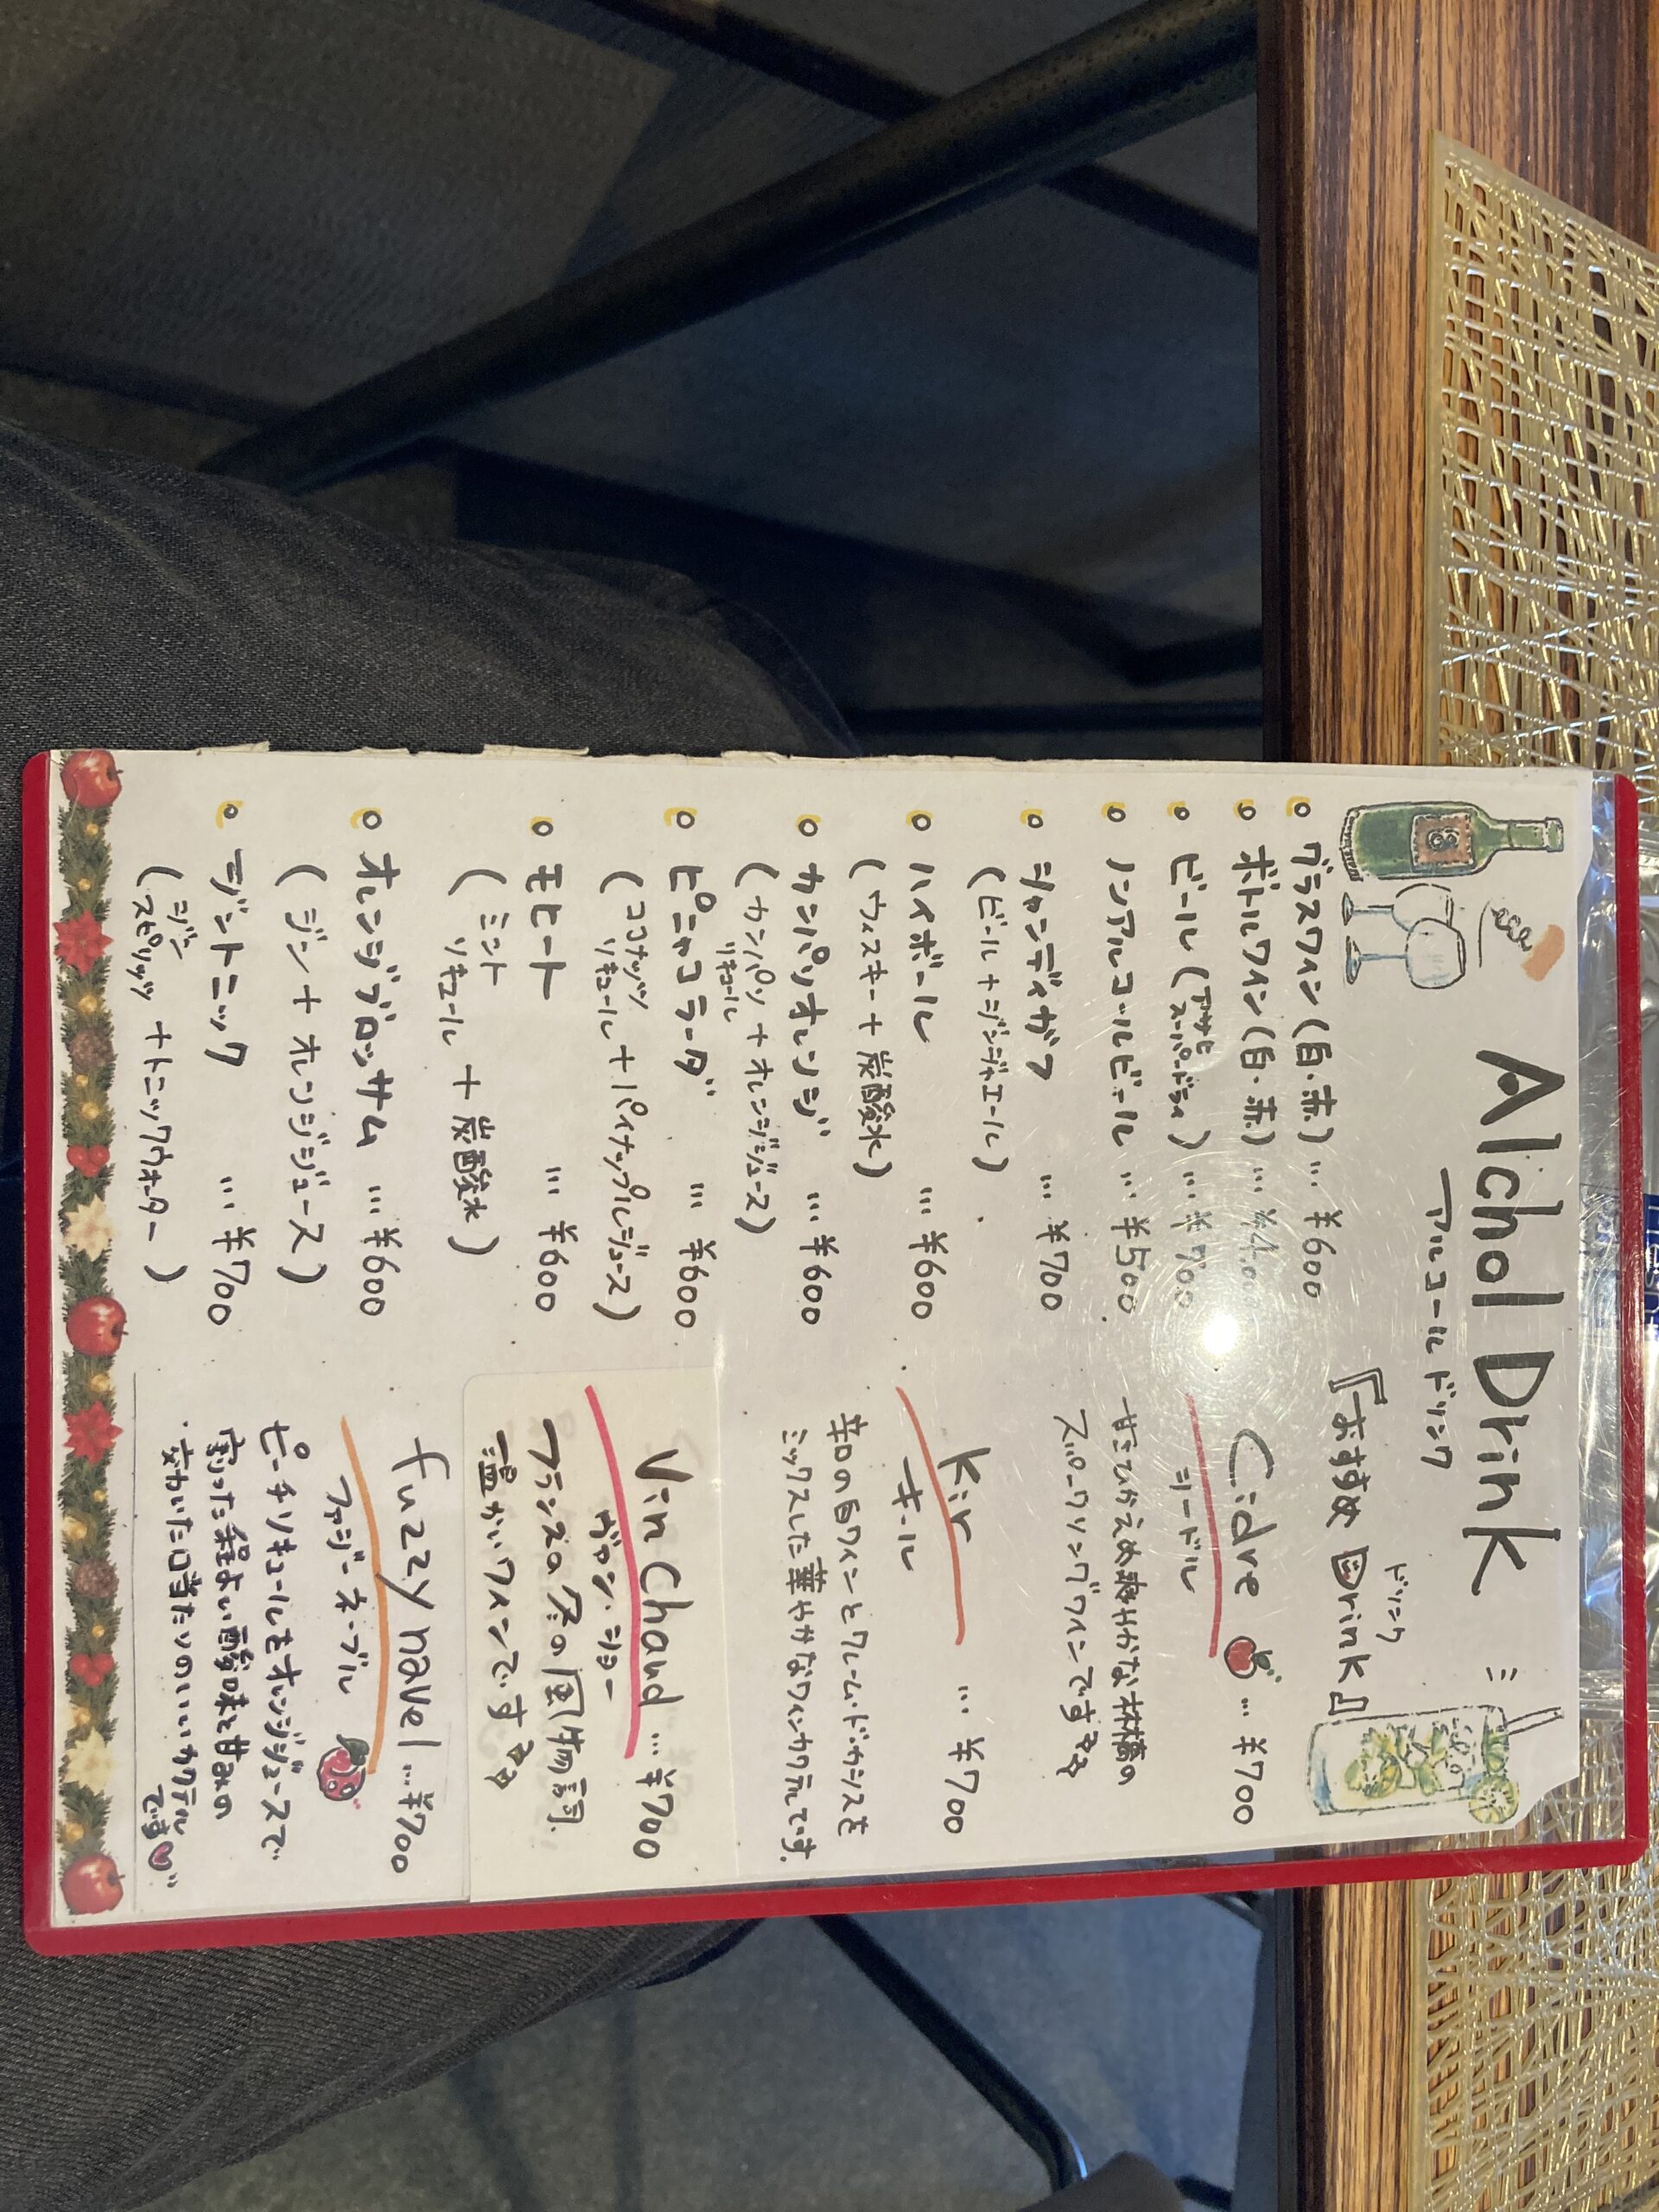 Alchol Drink
アルコールドリンク
グラスワイン (白・赤) … ¥600
ボトルワイン (白・赤) … ¥4.000
ビール (アサヒスーパードライ) … ¥700
ノンアルコールビール … ¥500
シャンディガフ … ¥700
(ビール + ジンジャエール)
ハイボール … ¥600
(ウィスキー + 炭酸水)
カンパリオレンジ … ¥600
(カンパリリキュール + オレンジジュース)
ピニャコラーダ … ¥600
(ココナッツリキュール + パイナップルジュース)
モヒート … ¥600
(ミントリキュール + 炭酸水)
オレンジブロッサム … ¥600
(ジン + オレンジジュース)
ジントニック … ¥700
(ジンスピリッツ + トニックウォーター)
『お奨め Drink』
ドリンク
Cidre … ¥700
シードル
甘さひかえめ 爽やかな林檎の
スパークリングワインです
Kir … ¥700
キール
辛口の白ワインとクレーム・ド・カシスを
ミックスした華やかなワインカクテルです.
Vin Chaud … ¥700
ヴァン・ショー
フランスの冬の風物詩.
温かいワインです
fuzzy navel … ¥700
ファジーネーブル
ピーチリキュールをオレンジジュースで
割った程よい酸味と甘みの
効いた口当たりのいいカクテル
です